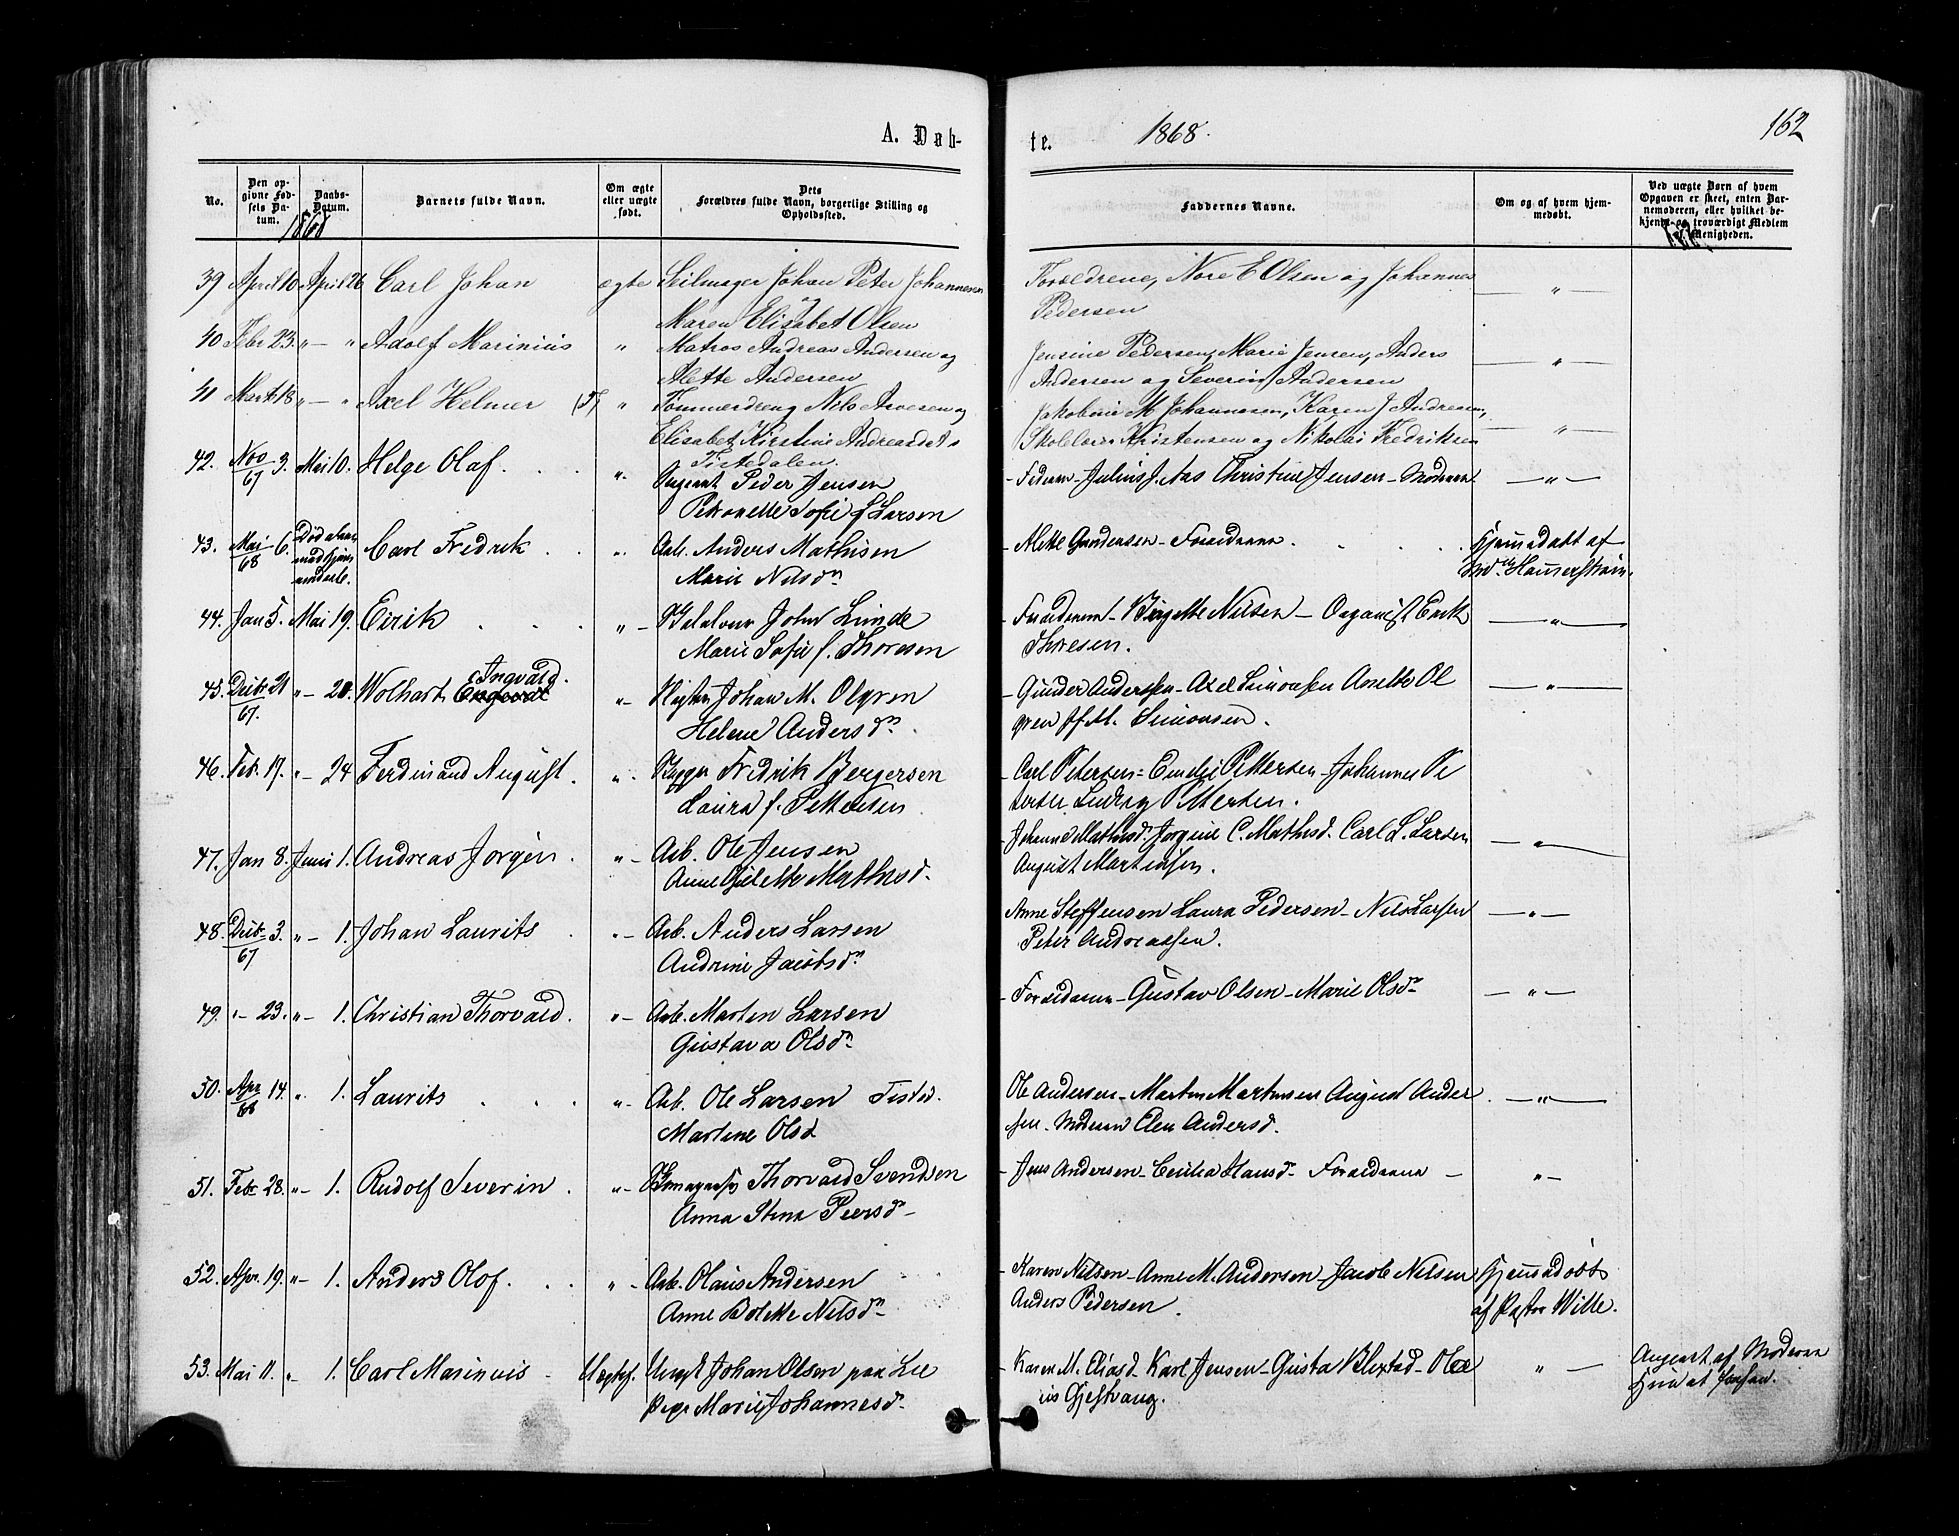 162
A. Døb-
te.
1868.
No.
Den op-
givne Fød-
sels Da-
tum.
Daabs-
Datum.
Barnets fulde Navn.
Om ægte
eller uægte
født.
Dets
Forældres fulde Navn, borgerlige Stilling og
Opholdssted.
Faddernes Navne.
Om og af hvem hjem-
medøbt.
Ved uægte Børn af hvem
Opgaven er skeet, enten Bar-
nemoderen, eller hvilket be-
kjendt og troværdigt Medlem
af Menigheden.
1868
39 April 10 April 26 Carl Johan ægte Seilmager Johan Peter Johannesen Forældrene, Nore E Olsen og Johannes — " —
og Pedersen
Maren Elisabet Olsen
40 Febr 23. " — " Adolf Marinius " Matros Andreas Andersen og Jensine Pedersen, Marie Jensen, Anders — " —
Mette Andersen Andersen og Severin Andersen
41 Marts 18 " — " Axel Helmer (T) " Tømmerdreng Nils Arvesen og Jakobine M Johannesen, Karen J Andresen,
Elisabet Kirstine Andreasdet. Kristensen og Nikolai Fredriksen — " —
Tistedalen.
42. Nov 3. Mai 10. Helge Olaf. . . ". Sergeant Peder Jensen - Faderen - Julius J. Aas Christine Jensen - Moderen — " —
67 Petronelle Sofie f Larsen
43. Mai 6. Død Carl Fredrik . . ". Arb. Anders Mathisen - Mette Gundersen - Forældrene . . . Hjemmedøbt af
68 Marie Nilsdn
44. Jan 5. Mai 19. Eirik . . . " - John Lunde - Forældrene - Birgitte Nilsen - Organist Eirik — " —
Marie Sofie f. Thoresen Thoresen.
Ingvald.
45. Decbr 21 " — 20. Wolhart Engevat " - Johan M. Olgren - Gunder Anderssen - Axel Simonsen Anette Ol — " —
67. Helene Andersdn. gren Simonsen.
46. Feb. 17. " — 24 Ferdinand August . ". Fredrik Bergersen - Carl Petersen - Emelie Pettersen - Johannes Pe
Laura f. Pettersen terse Ludvig Pettersen.
47. Jan 8. Juni 1. Andreas Jørgen . " - Arb. Ole Jensen - Johanne Mathisd. Jørgine C. Mathisd. Carl L. Larsen — " —
Mathisd. August Martinsen.
48. Decbr 3. " — 1. Johan Laurits . " - Arb. Anders Larsen Anne Steffensen Laura Pedersen - Nils Larsen — " —
67 Andrine Jacobsdn Peter Andreassen.
49. " - 23. " — 1. Christian Thorvald . " - Arb. Morten Larsen - Forældrene - Gustav Olsen - Marie Olsdn — " —
Gustava Olsdn
50. Apr 14. " . 1. Laurits . . . " - Arb. Ole Larsen Tisted. Ole Andersen - Morten Martinsen August Ander . — " —
68 Martine Olsd sen. Moderen Elen Andersd.
51. Feb. 28. " — 1. Rudolf Severin . " - Thorvald Svendsen - Jens Andersen - Cecilia Hansd. Forældrene — " —
Anna Stina Peersdn
52. Apr. 19. " — 1. Anders Olof. . . " - Arb. Olaus Andersen - Karen Nilsen - Anne M. Andersen - Jacob Nilsen Hjemmedøbt
Anne Bolette Nilsdn Anders Pedersen . af Pastor Wille.
53. Mai 11. " . 1. Carl Marinius - Uægtef. Ungk Johan Olsen paa Lie - Karen M. Eliasd. Karl Jensen - Gusta Blixtad - Ola " — Angivet af Moderen
Pige Marie Johannesd. us Gjestvang.